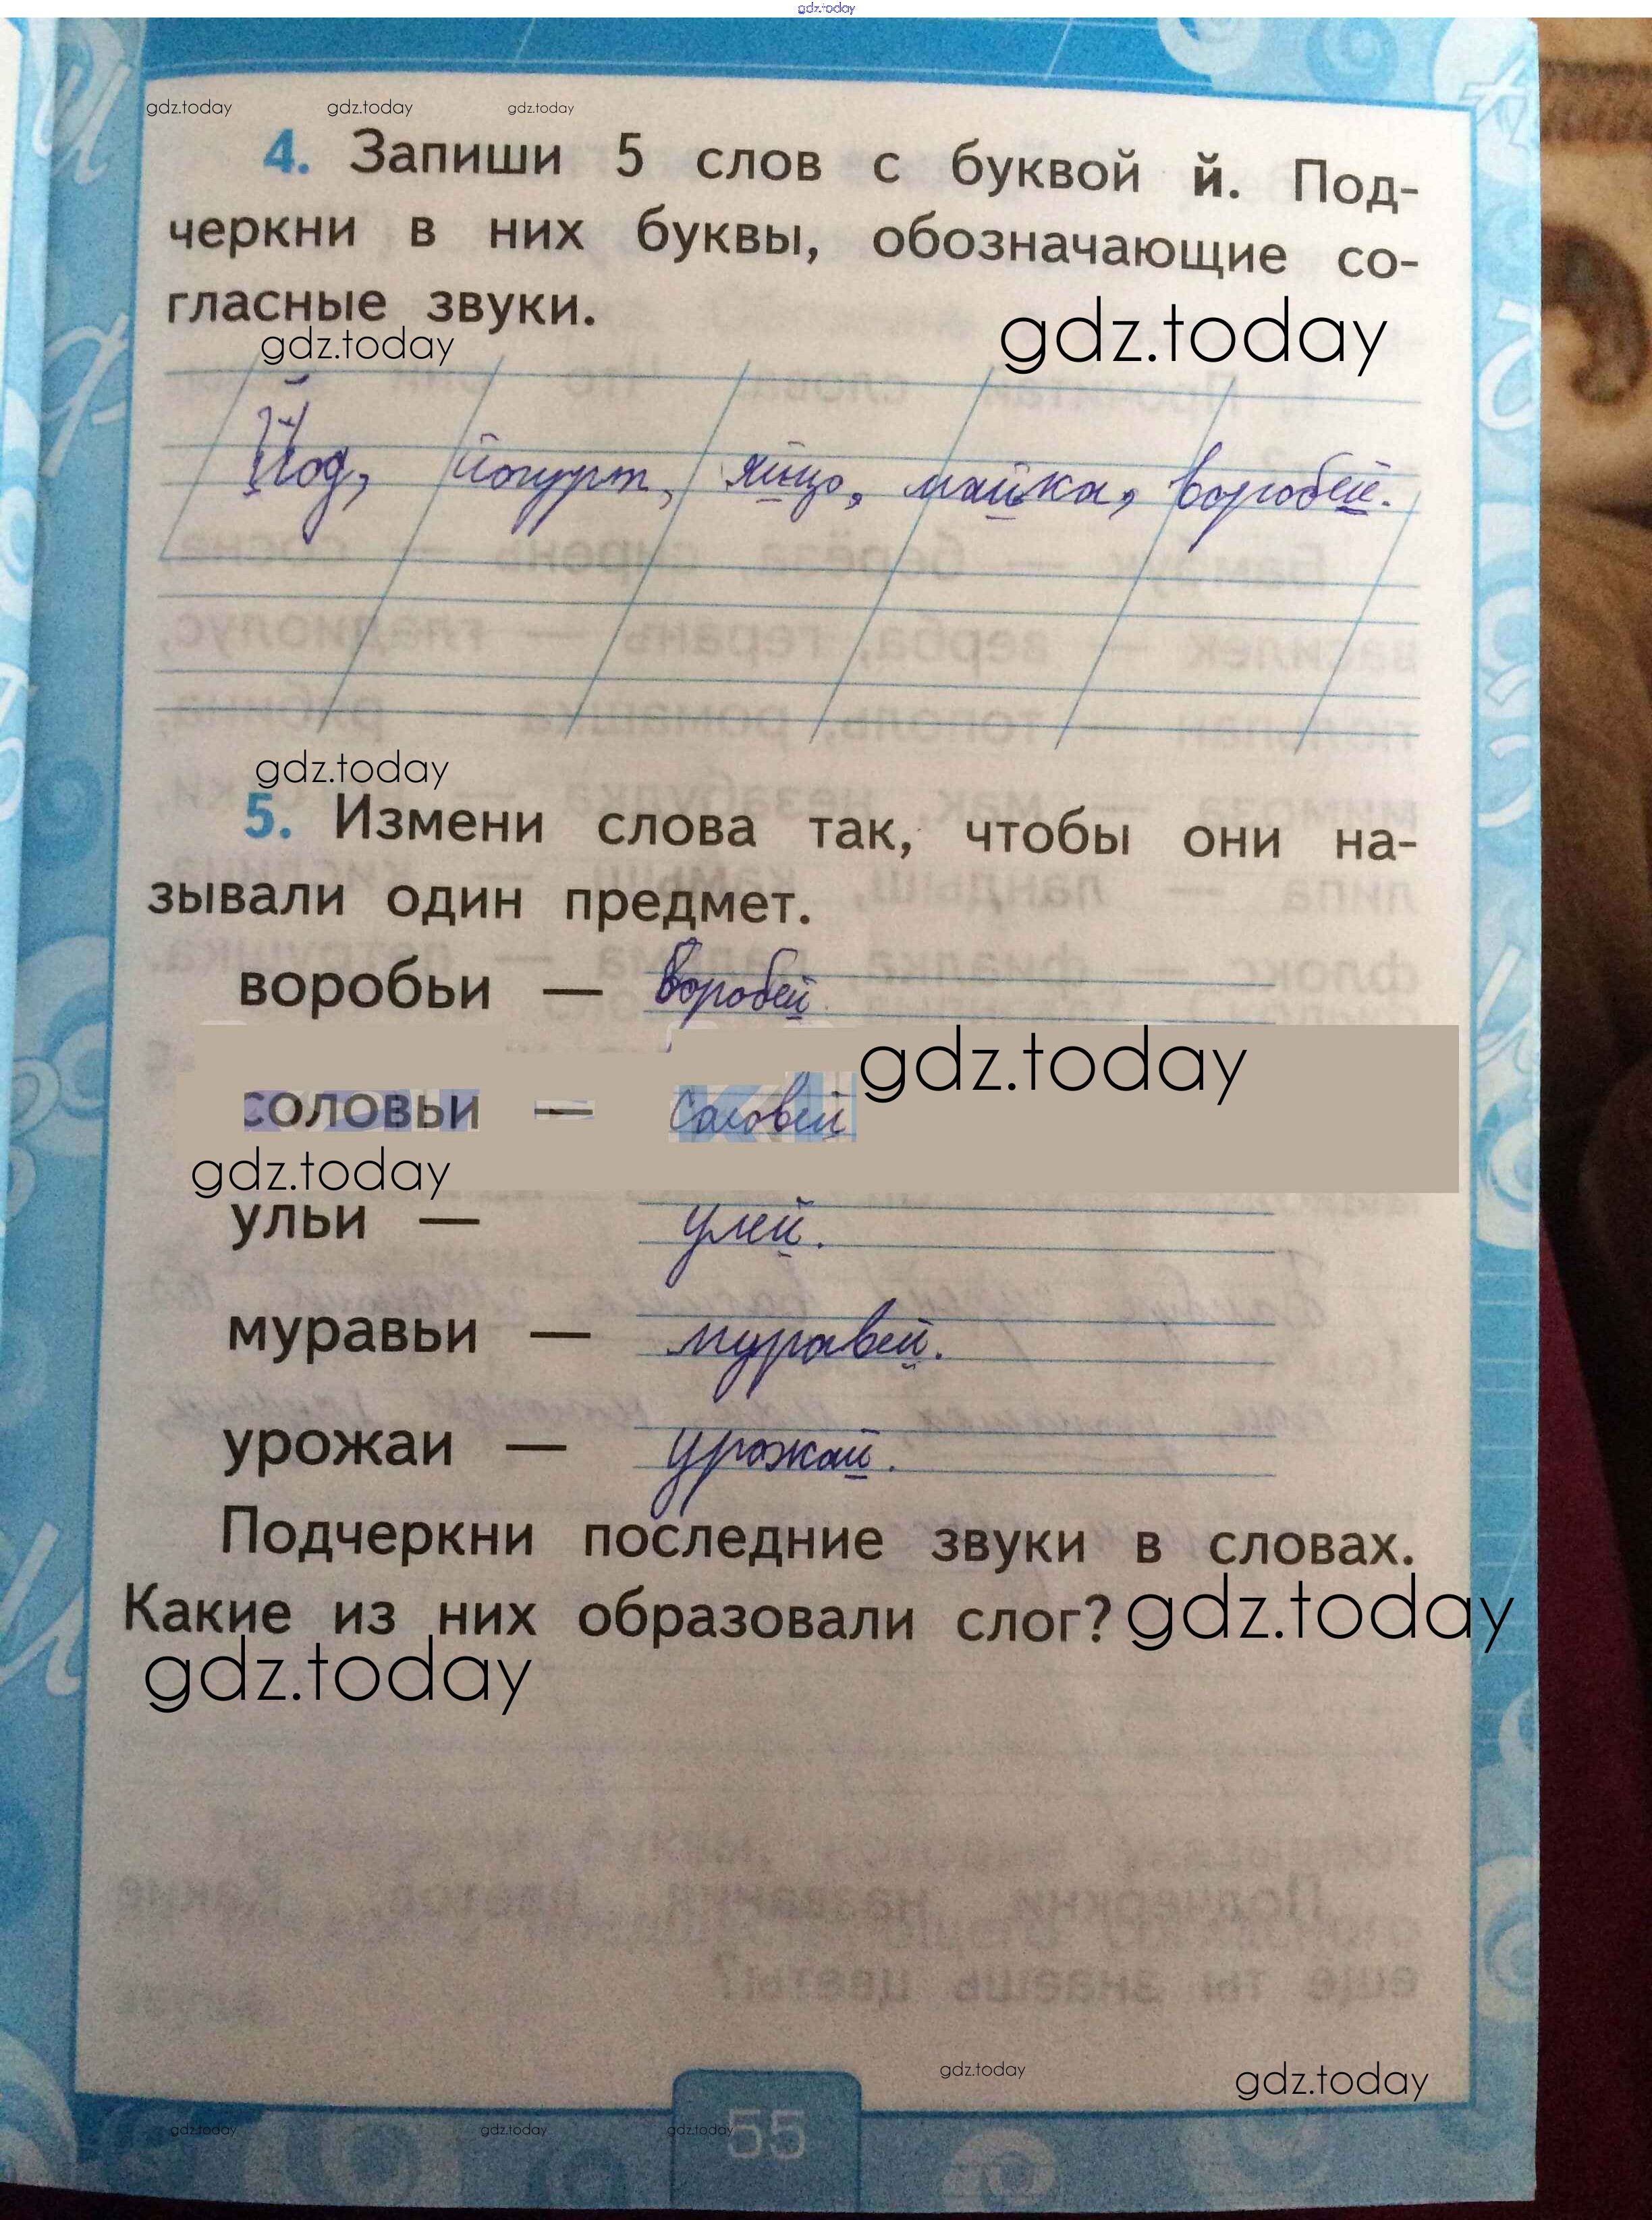 gdz.today
gdz.today gdz.today gdz.today
4. Запиши 5 слов с буквой й. Под-
черкни в них буквы, обозначающие со-
гласные звуки.
gdz.today gdz.today
Йод, йогурт, яйцо, майка, воробей.
gdz.today
5. Измени слова так, чтобы они на-
зывали один предмет.
воробьи — воробей
gdz.today
соловьи — соловей
gdz.today
ульи — улей.
муравьи — муравей.
урожаи — урожай.
Подчеркни последние звуки в словах.
Какие из них образовали слог? gdz.today
gdz.today
gdz.today gdz.today
gdz.today gdz.today gdz.today 55